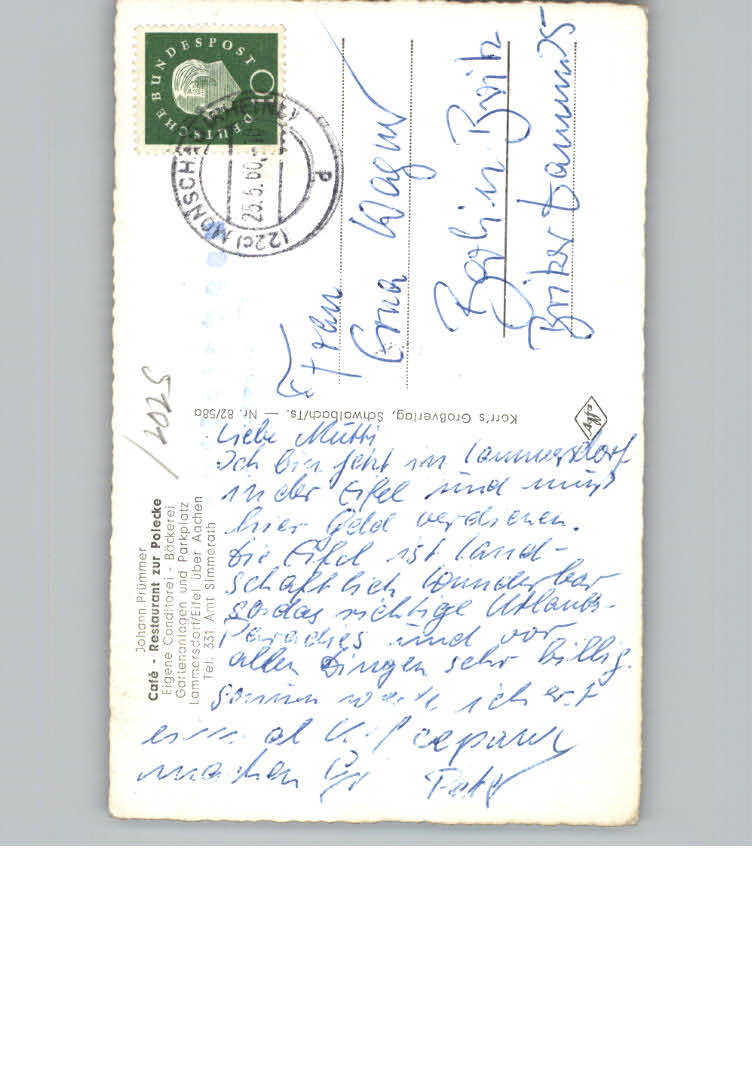 Johann Prümmer
Café - Restaurant zur Polecke
Eigene Conditorei - Bäckerei
Gartenanlagen und Parkplatz
Lammersdorf/Eifel über Aachen
Tel. 331 Amt Simmerath
Liebe Mutti
Ich bin jetzt in Lammersdorf
in der Eifel und muß
hier Geld verdienen.
Die Eifel ist land-
schaftlich wunderbar
so das richtige Urlaubs-
Paradies und vor
allen Dingen sehr billig.
ich erst
machen
Korr's Großverlag, Schwalbach/Ts. — Nr. 82/58a
DEUTSCHE BUNDESPOST
(22c) MONSCHAU
25.6.60
p
Frau
Erna Wagner
Berlin Britz
5707